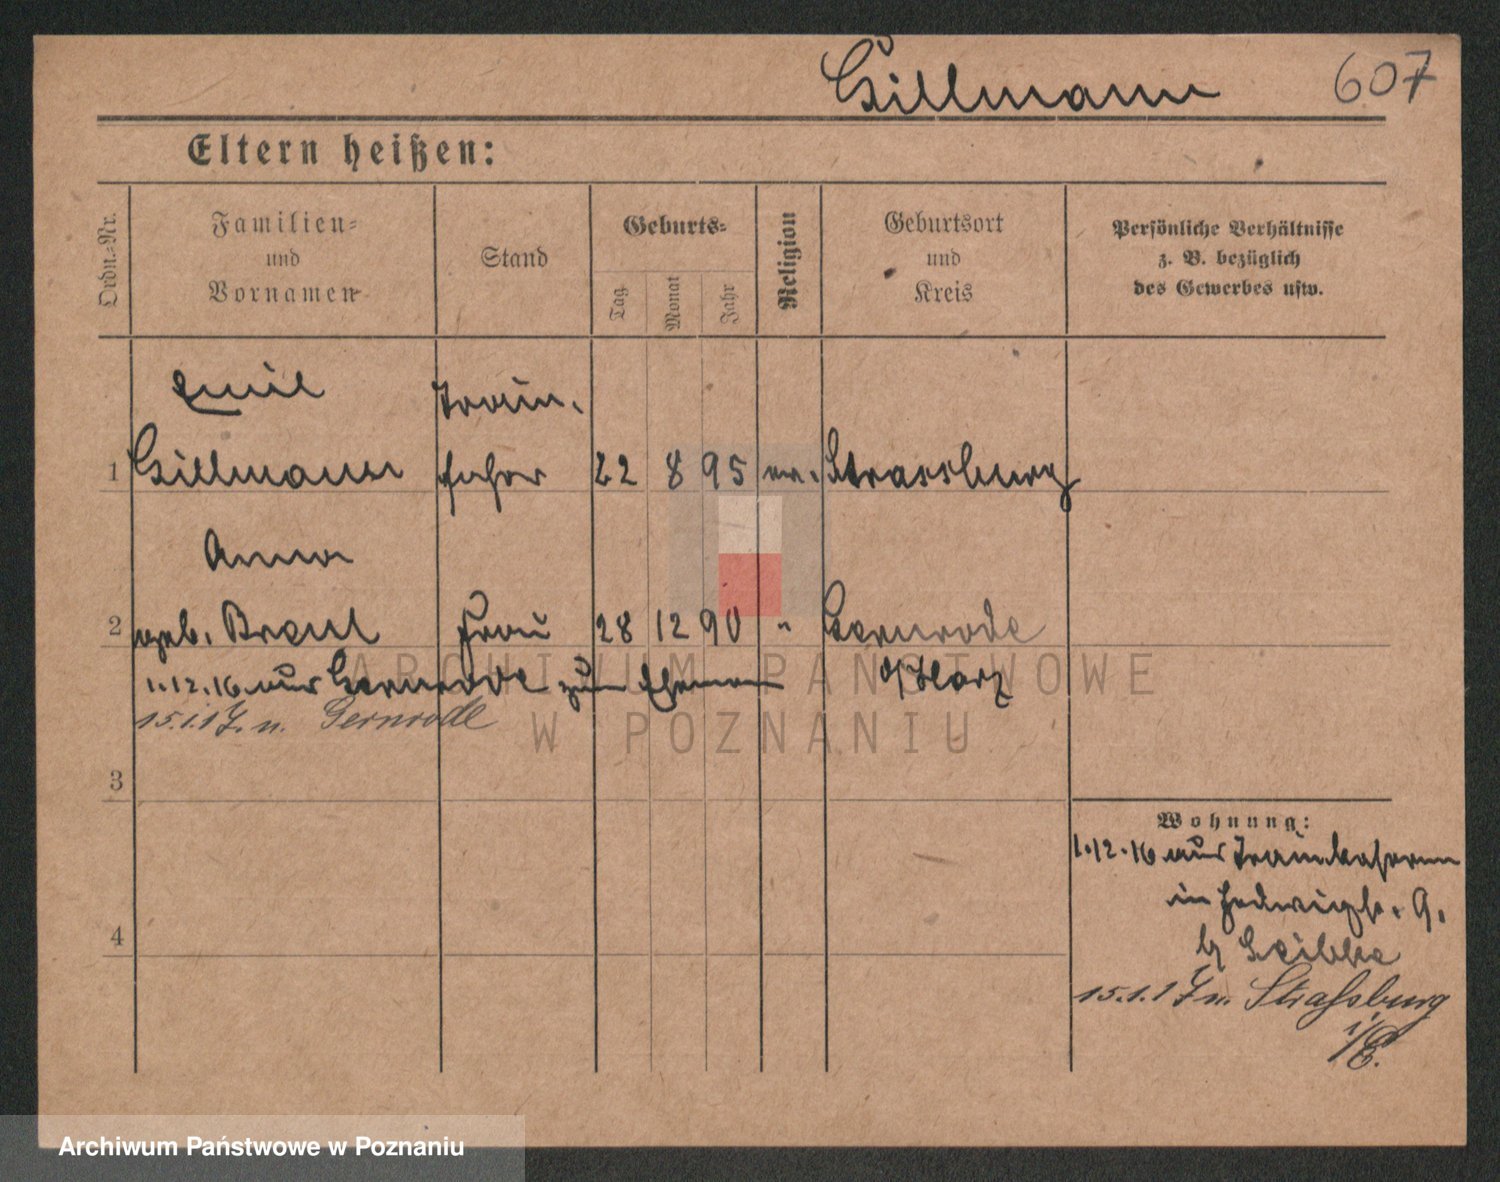 Gillmann 607
Eltern heißen:
Ordn.-Nr.
Familien-
und
Vornamen
Stand
Geburts-
Tag
Monat
Jahr
Religion
Geburtsort
und
Kreis
Persönliche Verhältnisse
z. B. bezüglich
des Gewerbes usw.
Emil Train-
1 Gillmann fahrer 22 8 95 ev. Strassburg
Anna
2 geb. Frau 28 12 90 " Gernrode
1.12.16 aus Gernrode zum Ehemann a/Harz
15.1.17. n. Gernrode
3
Wohnung:
1.12.16 aus Trainkaserne
in Hedwigstr. 9.
b/
4
15.1.17 n. Straßburg
i/E.
ARCHIWUM PAŃSTWOWE
W POZNANIU
Archiwum Państwowe w Poznaniu